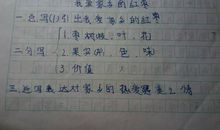 我爱家乡的红枣
一总写(1)引出我爱家乡的红枣
1.枣树的枝、叶、花
二分写 2.果实形、色、味
3.价值
三总写表达对家乡的热爱赞美之情